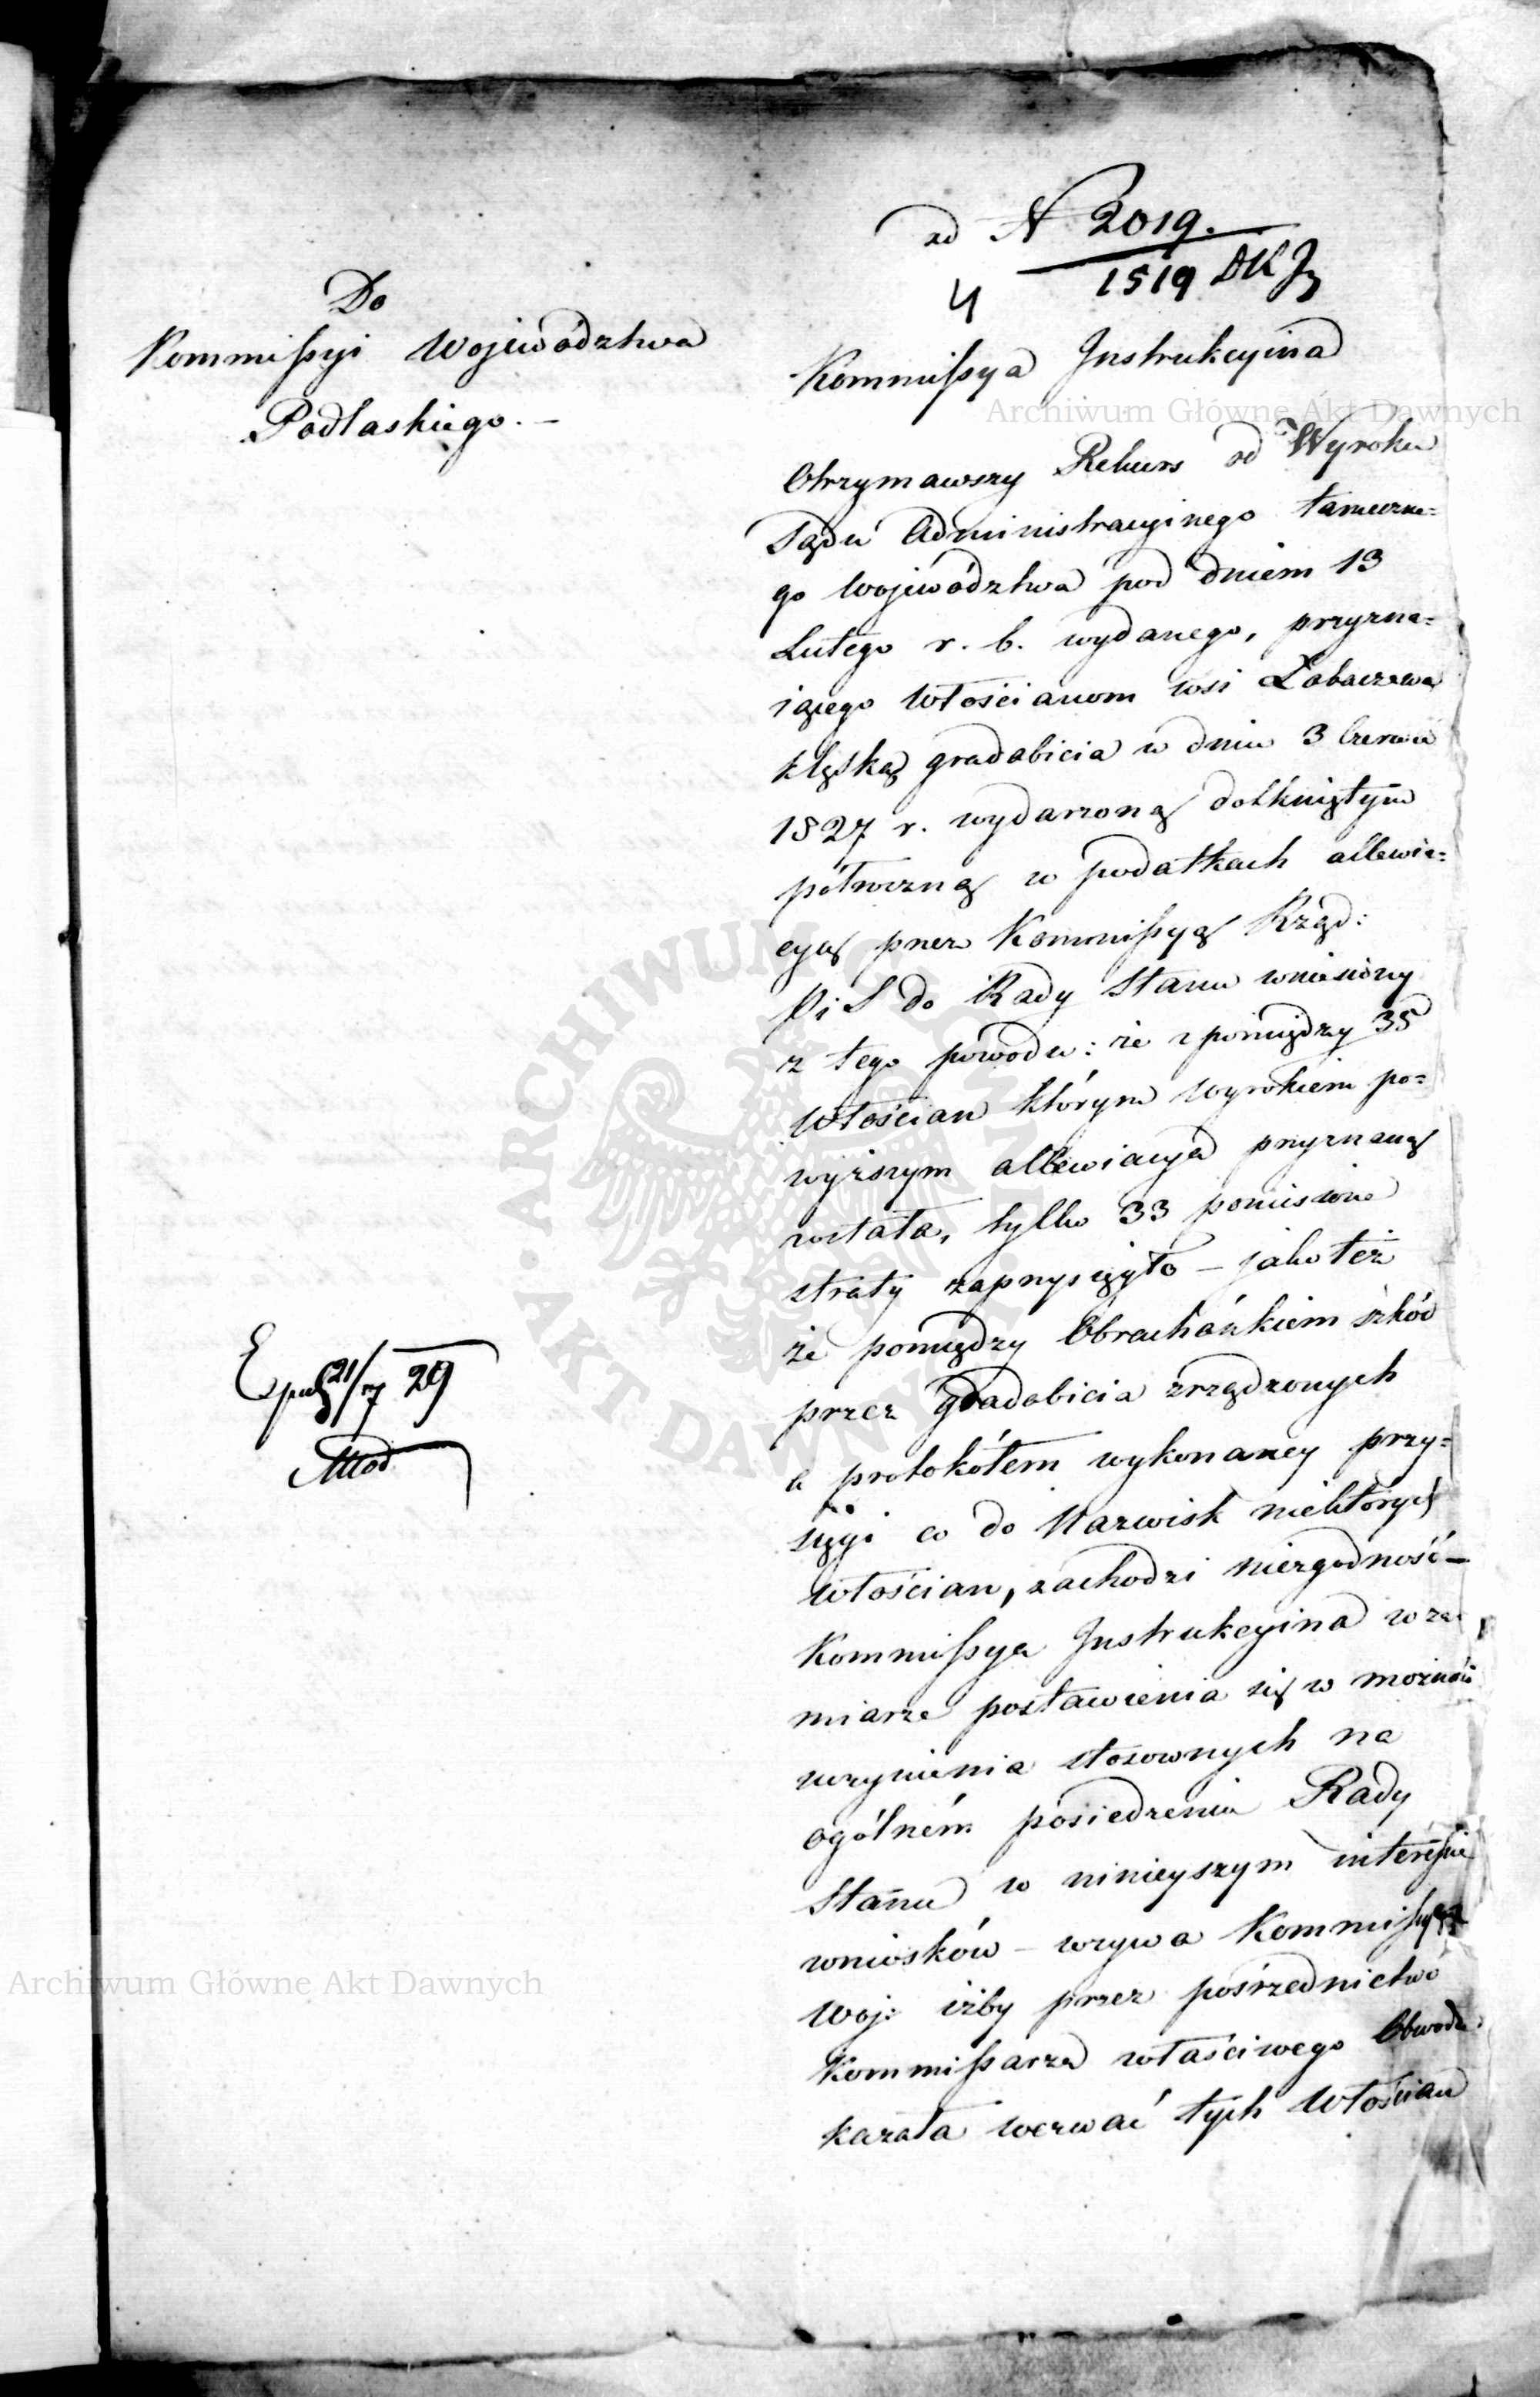 ad N 2019.
1519 DKJ
4
Do
Kommissyi Województwa
Podlaskiego. –
Kommissya Instrukcyina
Otrzymawszy Rekurs od Wyroku
Sądu Administracyinego tameczne=
go Województwa pod dniem 13
Lutego r. b. wydanego, przyzna=
iącego Włościanom wsi Łobaczewa
klęską gradobicia w dniu 3 Czerwca
1827 r. wydarzoną dotkniętym
półroczną w podatkach allewia=
cyą przez Kommissyą Rząd:
P i S do Rady Stanu wniesiony
z tego powodu: że z pomiędzy 35
Włościan którym wyrokiem po=
wyższym allewiacya przyznaną
została, tylko 33 poniesione
straty zaprzysięgło – jako też
że pomiędzy Obrachónkiem szkód
przez gradobicia zrządzonych
a protokółem wykonaney przy=
sięgi co do Nazwisk niektórych
włościan, zachodzi niezgodność –
Kommissya Instrukcyina w za=
miarze postawienia się w możności
uczynienia stosownych na
ogólném posiedzeniu Rady
Stanu w ninieyszym interessie
wniosków – wzywa Kommissyą
Woj: iżby przez pośrzednictwo
Kommissarza właściwego Obwodu
kazała wezwać tych Włościan
21/7 29
Archiwum Główne Akt Dawnych
Archiwum Główne Akt Dawnych
· ARCHIWUM GŁÓWNE · AKT DAWNYCH